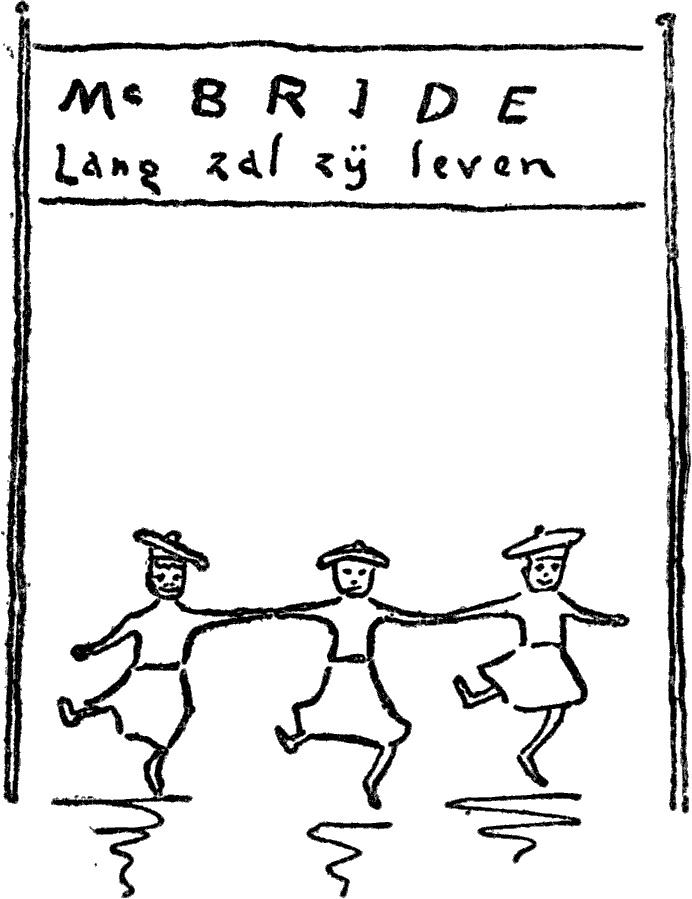 Mc BRIDE
Lang zal zij leven